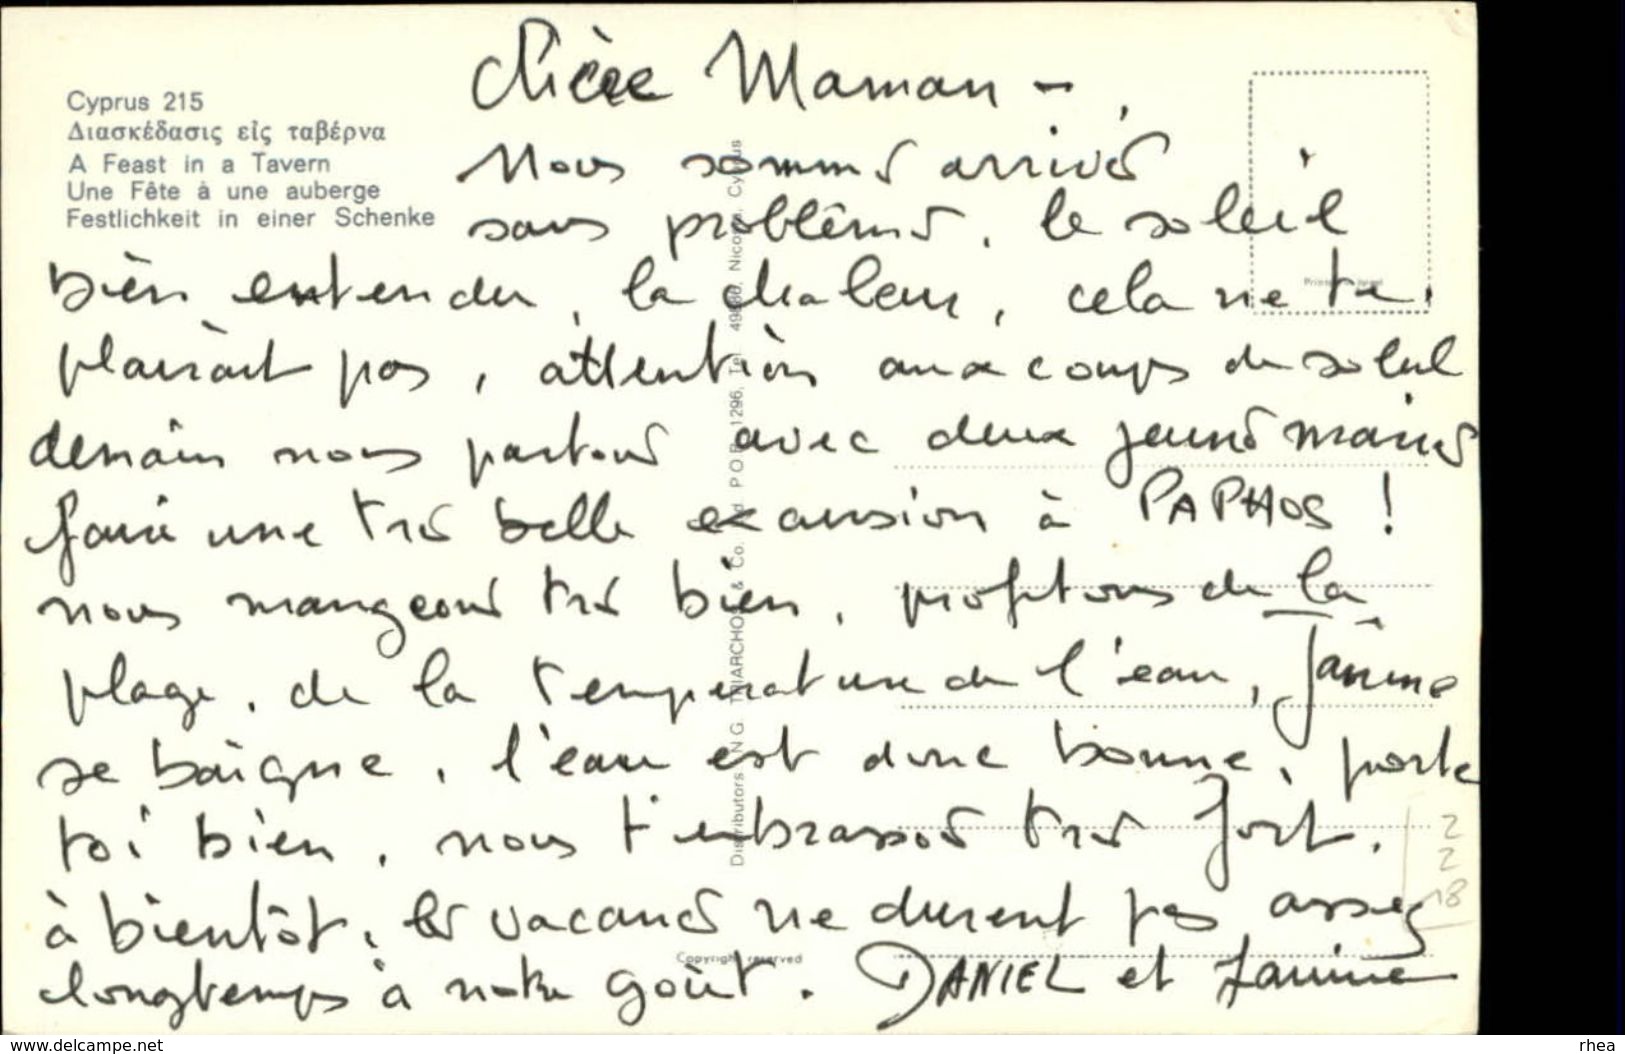 Cyprus 215
Διασκέδασις εἰς ταβέρνα
A Feast in a Tavern
Une Fête à une auberge
Festlichkeit in einer Schenke
Chère Maman -
Nous sommes arrivés
sans problèmes, le soleil
bien entendu, la chaleur, cela ne te
plairait pas, attention aux coups de soleil
demain nous partons avec deux jeunes mariés
faire une très belle excursion à PAPHOS !
nous mangeons très bien, profitons de la
plage, de la température de l'eau, Janine
se baigne, l'eau est donc bonne, porte
toi bien, nous t'embrassons très fort.
à bientôt, les vacances ne durent pas assez
longtemps à notre goût. DANIEL et Janine
Distributors N.G. TRIARCHOS & Co. P O B 1296, Tel. Nicosia, Cyprus
Copyright reserved
2
2
18
www.delcampe.net
rhea